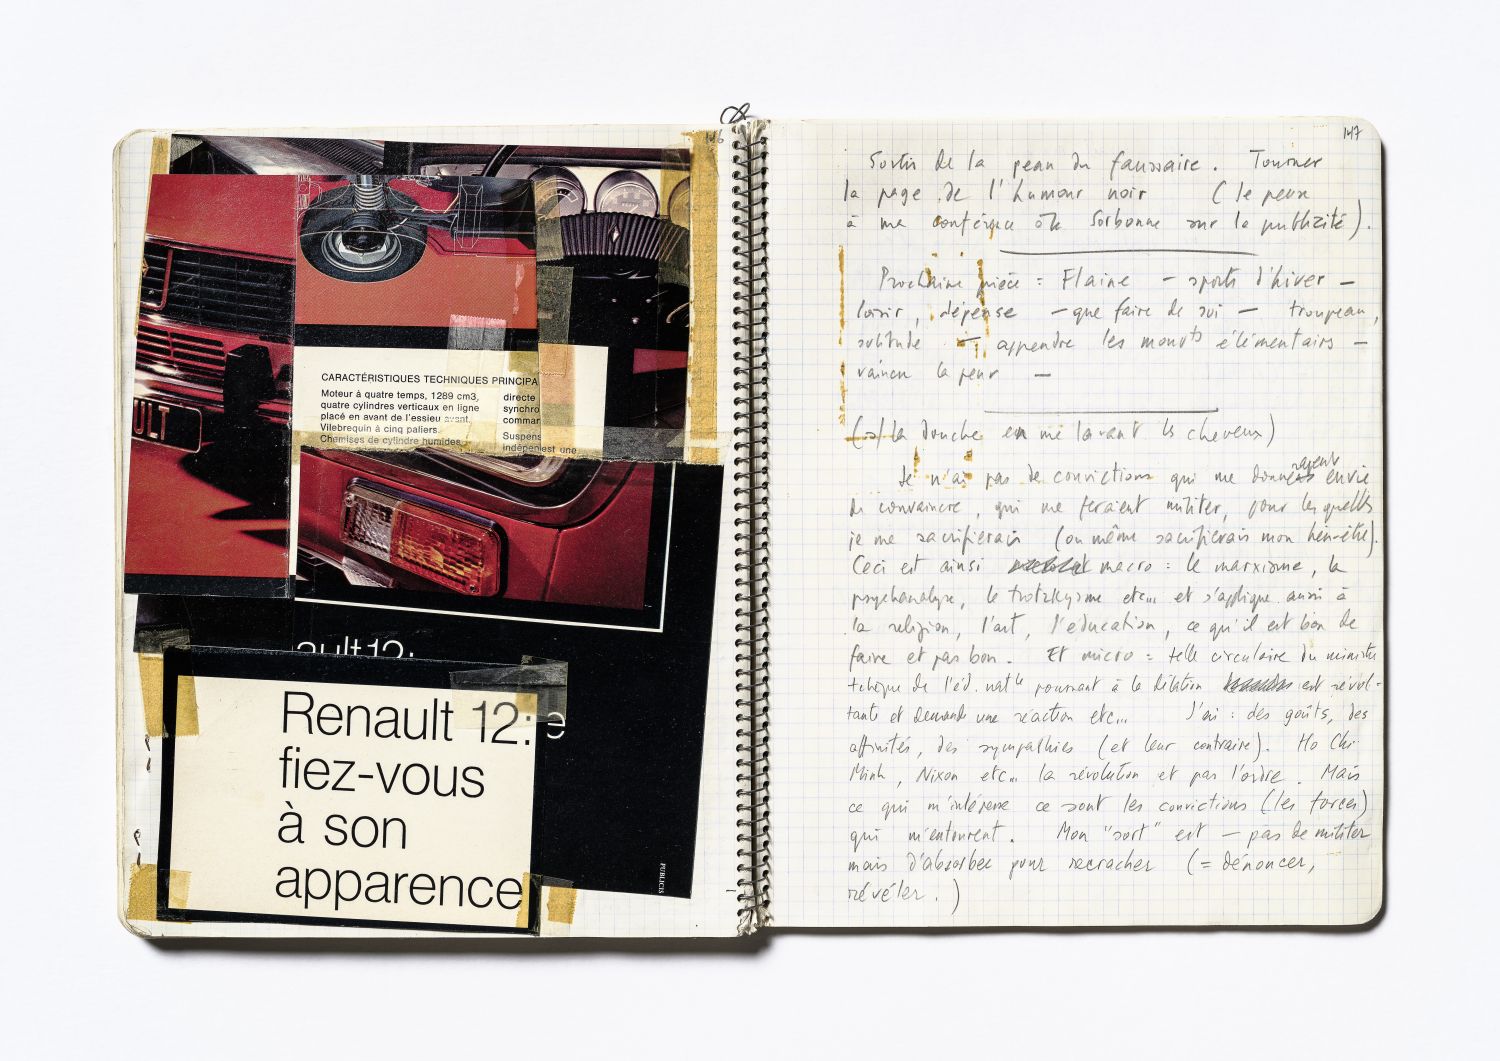 146
CARACTÉRISTIQUES TECHNIQUES PRINCIPA
Moteur à quatre temps, 1289 cm3,
quatre cylindres verticaux en ligne
placé en avant de l'essieu avant.
Vilebrequin à cinq paliers.
Chemises de cylindre humides.
directe
synchro
comman
Suspens
indépen est une
ULT
ault 12:
Renault 12: e
fiez-vous
à son
apparence
PUBLICIS
147
Sortir de la peau du faussaire. Tourner
la page de l'humour noir (le peux
à ma conférence à la Sorbonne sur la publicité).
Prochaine pièce : Flaine – sports d'hiver –
loisir, dépense – que faire de soi – troupeau,
solitude – apprendre les mouvts élémentaires –
vaincre la peur –
(ds la douche en me lavant les cheveux)
Je n'ai pas de convictions qui me donneraient envie
de convaincre, qui me feraient militer, pour lesquelles
je me sacrifierais (ou même sacrifierais mon bien-être).
Ceci est ainsi macro : le marxisme, la
psychanalyse, le trotzkysme etc... et s'applique aussi à
la religion, l'art, l'éducation, ce qu'il est bon de
faire et pas bon. Et micro : telle circulaire du ministre
tchèque de l'éd. natle poussant à la délation est révol-
tante et demande une réaction etc... J'ai : des goûts, des
affinités, des sympathies (et leur contraire). Ho Chi
Minh, Nixon etc... la révolution et pas l'ordre. Mais
ce qui m'intéresse ce sont les convictions (les forces)
qui m'entourent. Mon "sort" est – pas de militer
mais d'absorber pour recracher (= dénoncer,
révéler.)